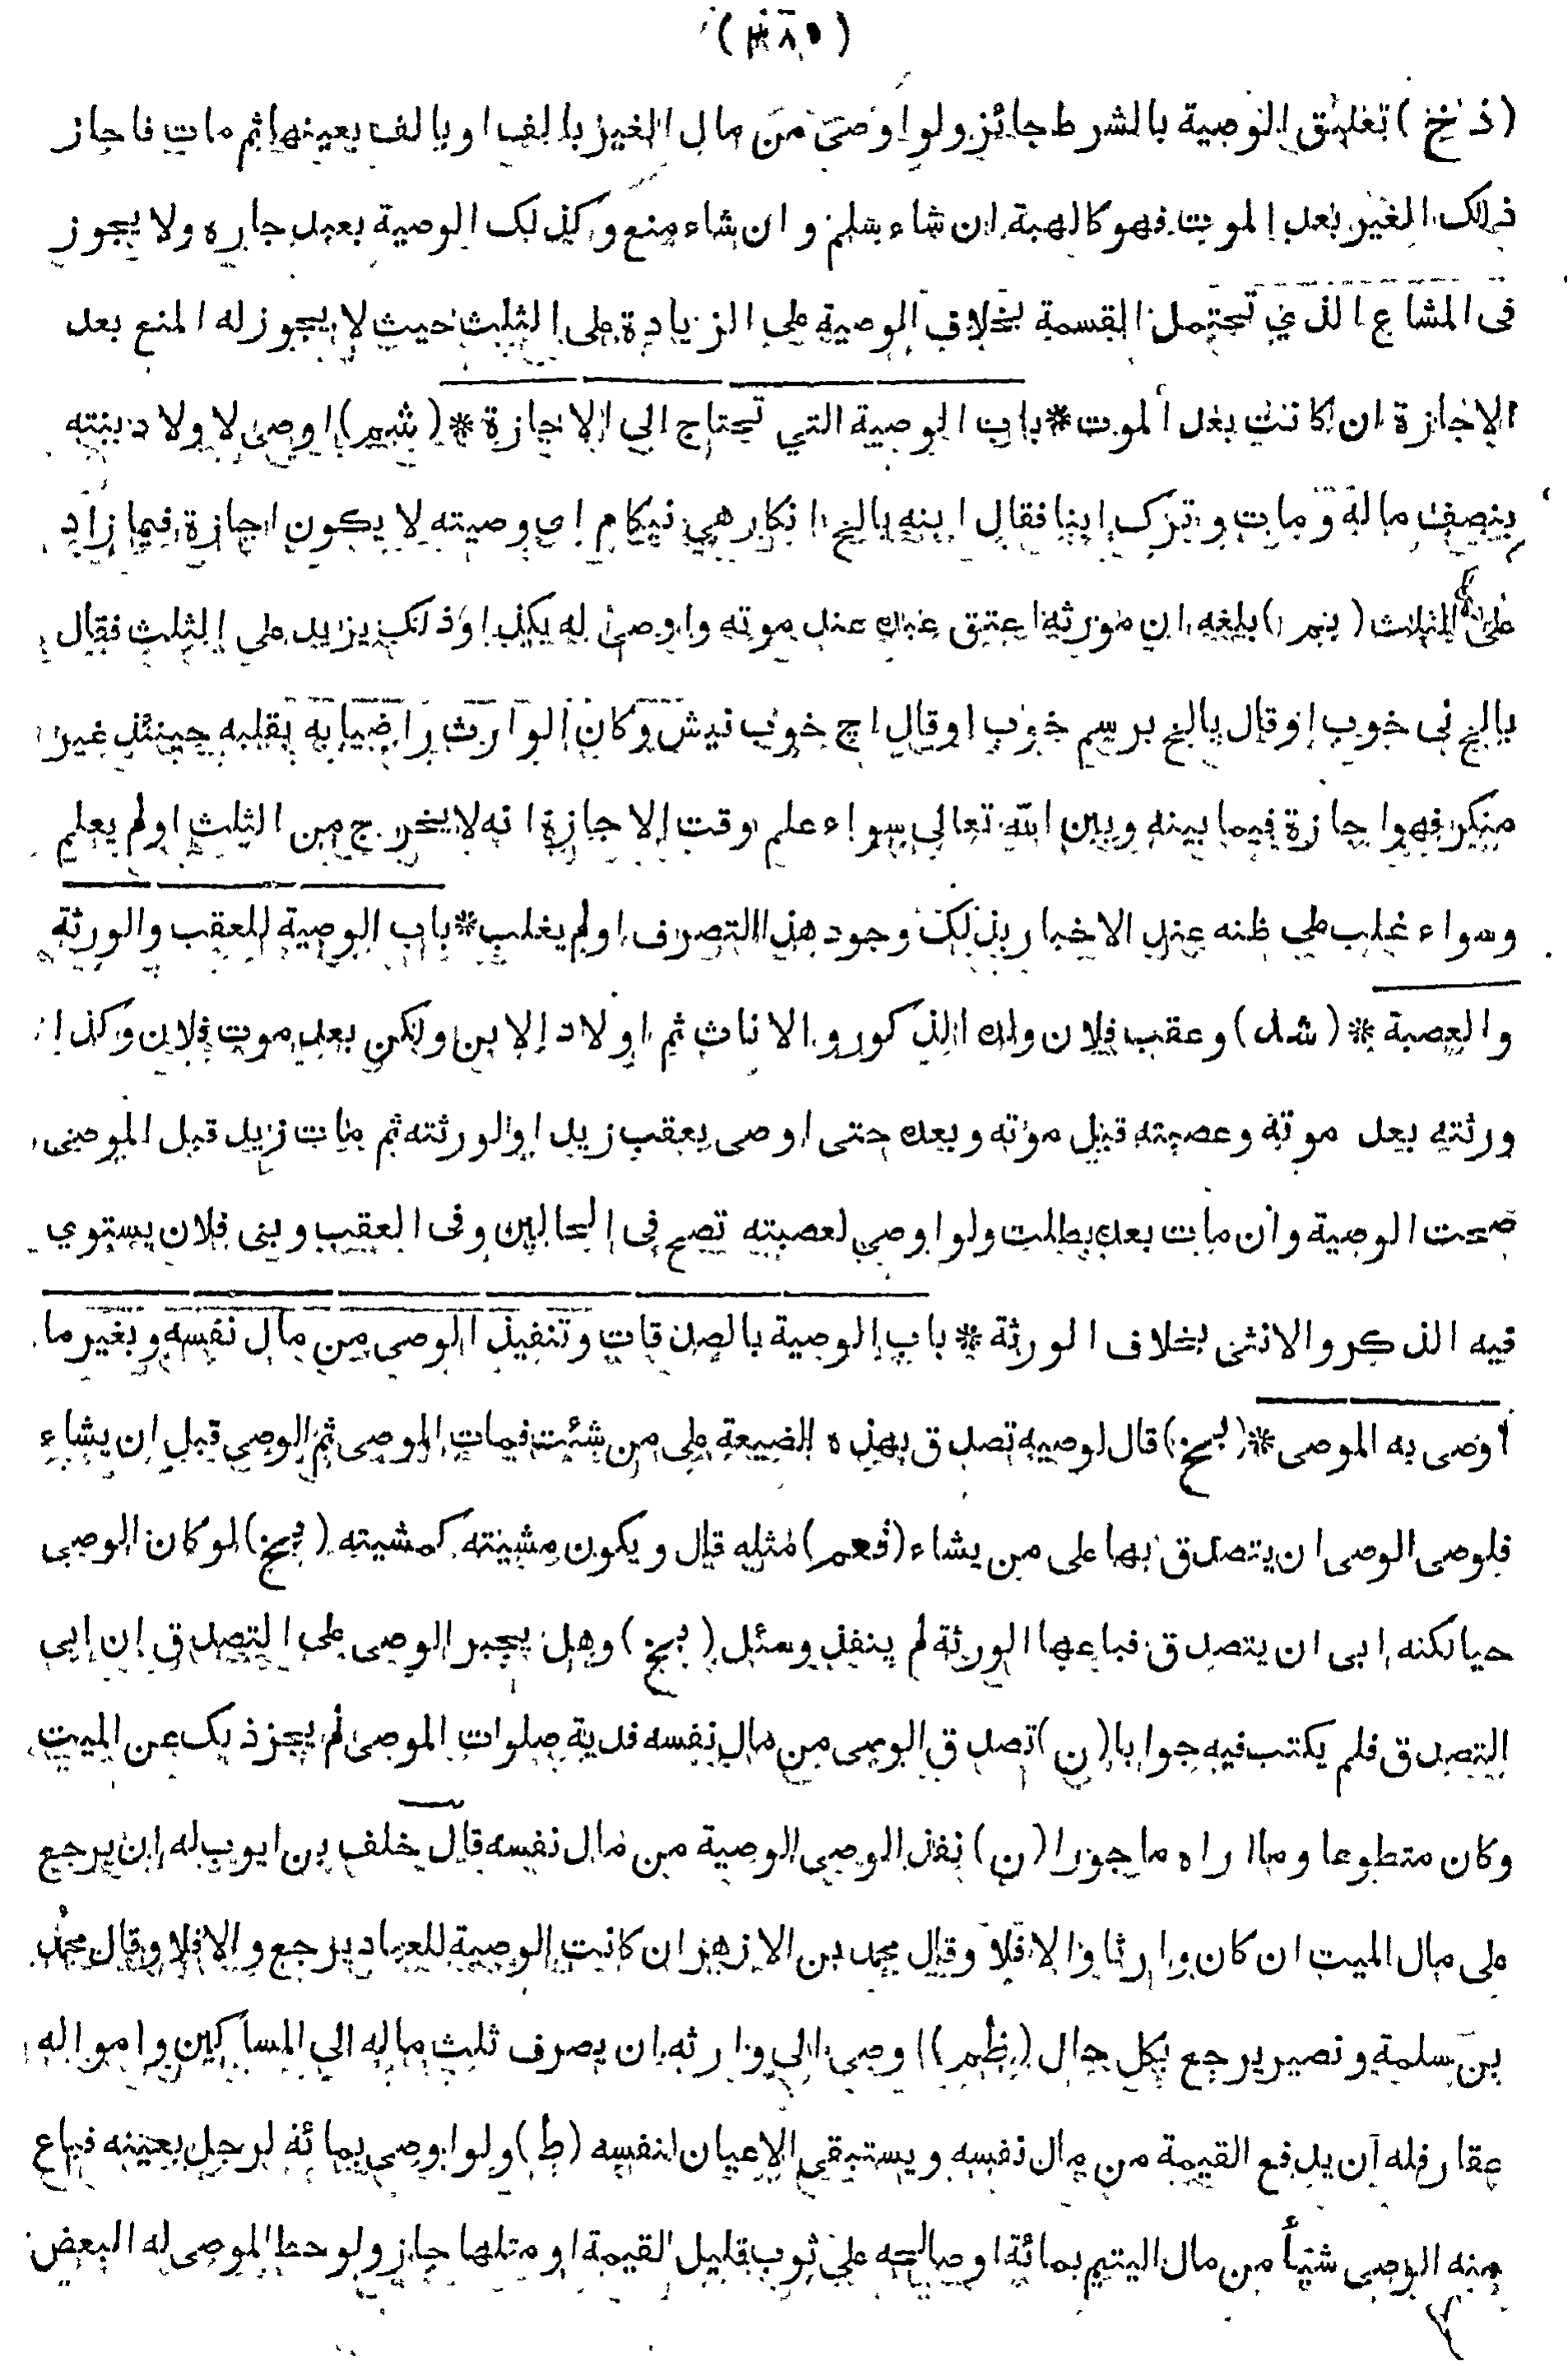 (٣٨٥)
(ذخ) تعليق الوصية بالشرط جائز ولو اوصى من مال الغير بالف او بالف بعينها ثم مات فاجاز
ذلك الغير بعد الموت فهو كالهبة ان شاء سلم و ان شاء منع و كذلك الوصية بعبد جاره ولا يجوز
فى المشاع الذي تحتمل القسمة بخلاف الوصية على الزيادة على الثلث حيث لا يجوز له المنع بعد
الاجازة ان كانت بعد الموت * باب الوصية التي تحتاج الى الاجازة * (شبم) اوصى لاولاد بنته
بنصف ماله و مات و ترك ابنا فقال ابنه بالخ انكار هي نيكام اى وصيته لا يكون اجازة فيما زاد
على الثلث (بم) بلغه ان مورثه اعتق عبده عند موته واوصى له بكذا وذلك يزيد على الثلث فقال
بالخ نى خوب او قال بالخ برسم خوب او قال اچ خوب نيش وكان الوارث راضيا به بقلبه حينئذ غير
منكر فهو اجازة فيما بينه وبين الله تعالى سواء علم وقت الاجازة انه لا يخرج من الثلث او لم يعلم
وسواء غلب على ظنه عند الاخبار بذلك وجود هذا التصرف او لم يغلب * باب الوصية للعقب والورثة
والعصبة * (شد) وعقب فلان ولده الذكور و الاناث ثم اولاد الابن ولكن بعد موت فلان وكذا
ورثته بعد موته و عصبته قبل موته و بعده حتى اوصى بعقب زيد او لورثته ثم مات زيد قبل الموصى
صحت الوصية و ان مات بعده بطلت ولو اوصي لعصبته تصح فى الحالين و فى العقب و بنى فلان يستوي
فيه الذكر والانثى بخلاف الورثة * باب الوصية بالصدقات وتنفيذ الوصى من مال نفسه و بغير ما
اوصى به الموصى * (بخ) قال لوصيه تصدق بهذه الضيعة على من شئت فمات الموصى ثم الوصي قبل ان يشاء
فلوصى الوصى ان يتصدق بها على من يشاء (فعم) مثله قال و يكون مشيئته كمشيته (بخ) لو كان الوصى
حيا لكنه ابى ان يتصدق فباعها الورثة لم ينفذ وسئل (بخ) وهل يجبر الوصى على التصدق ان ابى
التصدق فلم يكتب فيه جوابا (ن) تصدق الوصى من مال نفسه فدية صلوات الموصى لم يجز ذلك عن الميت
وكان متطوعا وما اراه ماجورا (ن) نفذ الوصى الوصية من مال نفسه قال خلف بن ايوب له ان يرجع
على مال الميت ان كان وارثا و الا فلا وقال محمد بن الازهر ان كانت الوصية للعباد يرجع و الا فلا وقال محمد
بن سلمة و نصير يرجع بكل حال (ظم) اوصى الى وارثه ان يصرف ثلث ماله الى المساكين و امواله
عقار فله ان يدفع القيمة من مال نفسه و يستبقى الاعيان لنفسه (ط) ولو اوصى بمائة لرجل بعينه فباع
منه الوصى شئيأ من مال اليتيم بمائة او صالحه على ثوب قليل القيمة او مثلها جاز ولو حط الموصى له البعض